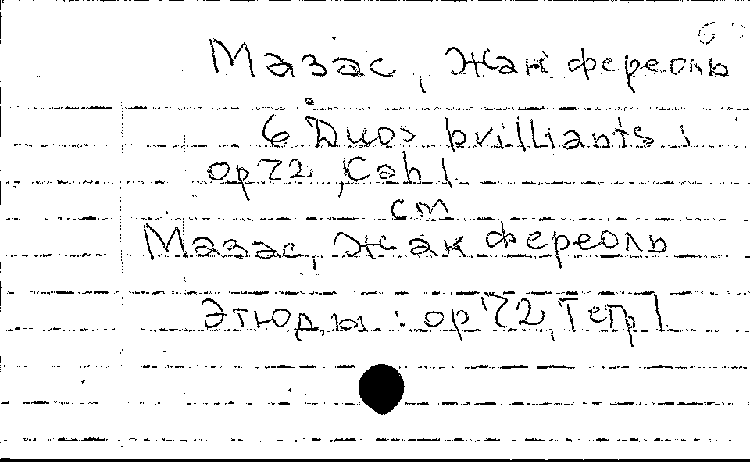 Мазас, Жак Фереоль
6 Duos brilliants :
op 72, Cah 1.
см
Мазас, Жак Фереоль
Этюды : op 72, Тетр 1